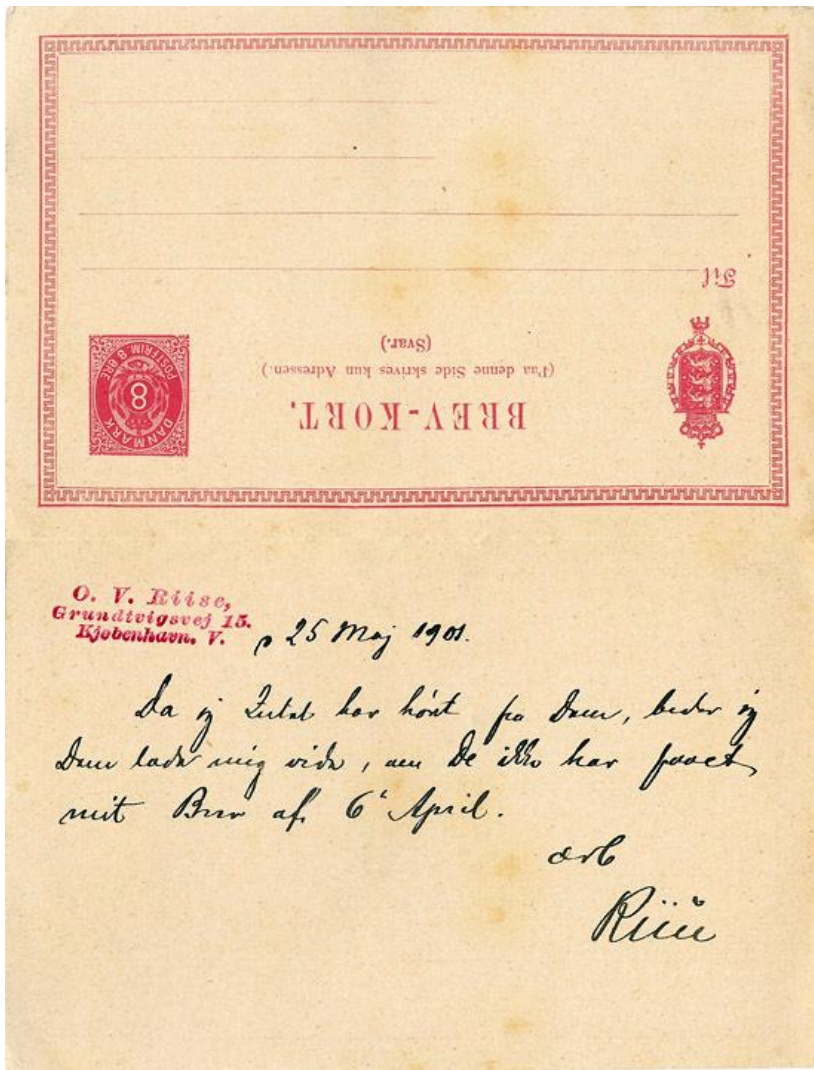 Til
(Svar.)
(Paa denne Side skrives kun Adressen.)
BREV-KORT.
DANMARK
8
POSTFRIM 8 ØRE
O. V. Riise,
Grundtvigsvej 15.
Kjøbenhavn. V.
25 Maj 1901.
Da jeg Intet har hørt fra Dem, beder jeg
Dem lade mig vide, om De ikke har faaet
mit Brev af 6' April.
ærb
Riise